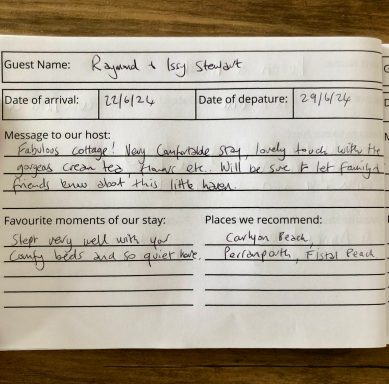 Guest Name: Raymond + Issy Stewart
Date of arrival: 22/6/24 Date of depature: 29/6/24
Message to our host:
Fabulous cottage! Very Comfortable stay, lovely touch with the
gorgeous cream tea, flowers etc. Will be sure to let family +
friends know about this little haven.
Favourite moments of our stay:
Slept very well with your
Comfy beds and so quiet here.
Places we recommend:
Carlyon Beach,
Perranporth, Fistal Beach